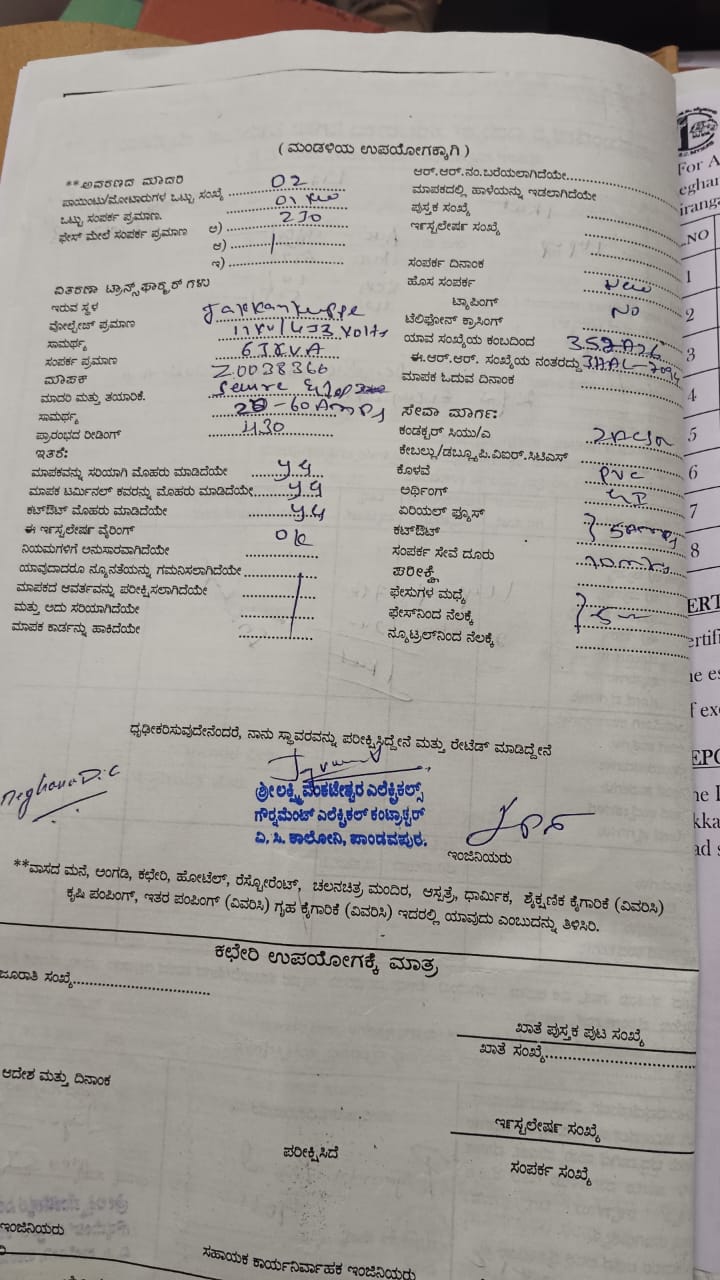 ( ಮಂಡಳಿಯ ಉಪಯೋಗಕ್ಕಾಗಿ )
**ಆವರಣದ ಮಾದರಿ
ಪಾಯಿಂಟು/ಮೋಟಾರುಗಳ ಒಟ್ಟು ಸಂಖ್ಯೆ 02
ಒಟ್ಟು ಸಂಪರ್ಕ ಪ್ರಮಾಣ. 01 KW
ಫೇಸ್ ಮೇಲೆ ಸಂಪರ್ಕ ಪ್ರಮಾಣ ಅ) 230
ಆ)
ಇ)
ವಿತರಣಾ ಟ್ರಾನ್ಸ್‌ಫಾರ್ಮರ್ ಗಳು
ಇರುವ ಸ್ಥಳ
ವೋಲ್ಟೇಜ್ ಪ್ರಮಾಣ 11KV/433 Volts
ಸಾಮರ್ಥ್ಯ 63KVA
ಸಂಪರ್ಕ ಪ್ರಮಾಣ Z0038366
ಮಾಪಕ Secure
ಮಾದರಿ ಮತ್ತು ತಯಾರಿಕೆ.
ಸಾಮರ್ಥ್ಯ -60Amps
ಪ್ರಾರಂಭದ ರೀಡಿಂಗ್ 430
ಇತರೆ:
ಮಾಪಕವನ್ನು ಸರಿಯಾಗಿ ಮೊಹರು ಮಾಡಿದೆಯೇ
ಮಾಪಕ ಟರ್ಮಿನಲ್ ಕವರನ್ನು ಮೊಹರು ಮಾಡಿದೆಯೇ
ಕಟ್‌ಔಟ್ ಮೊಹರು ಮಾಡಿದೆಯೇ
ಈ ಇನ್ಸ್ಟಲೇಷನ್ ವೈರಿಂಗ್
ನಿಯಮಗಳಿಗೆ ಅನುಸಾರವಾಗಿದೆಯೇ OK
ಯಾವುದಾದರೂ ನ್ಯೂನತೆಯನ್ನು ಗಮನಿಸಲಾಗಿದೆಯೇ
ಮಾಪಕದ ಆವರ್ತವನ್ನು ಪರೀಕ್ಷಿಸಲಾಗಿದೆಯೇ
ಮತ್ತು ಅದು ಸರಿಯಾಗಿದೆಯೇ
ಮಾಪಕ ಕಾರ್ಡನ್ನು ಹಾಕಿದೆಯೇ
ಆರ್.ಆರ್.ನಂ.ಬರೆಯಲಾಗಿದೆಯೇ
ಮಾಪಕದಲ್ಲಿ ಹಾಳೆಯನ್ನು ಇಡಲಾಗಿದೆಯೇ
ಪುಸ್ತಕ ಸಂಖ್ಯೆ
ಇನ್ಸ್ಟಲೇಷನ್ ಸಂಖ್ಯೆ
ಸಂಪರ್ಕ ದಿನಾಂಕ
ಹೊಸ ಸಂಪರ್ಕ New
ಟ್ಯಾಪಿಂಗ್
ಟೆಲಿಫೋನ್ ಕ್ರಾಸಿಂಗ್ No
ಯಾವ ಸಂಖ್ಯೆಯ ಕಂಬದಿಂದ
ಈ.ಆರ್.ಆರ್. ಸಂಖ್ಯೆಯ ನಂತರದ್ದು
ಮಾಪಕ ಓದುವ ದಿನಾಂಕ
ಸೇವಾ ಮಾರ್ಗ:
ಕಂಡಕ್ಟರ್ ಸಿಯು/ಎ
ಕೇಬಲ್ಲು/ಡಬ್ಲ್ಯೂ.ಪಿ.ವಿ.ಐರ್.ಸಿಟಿಎಸ್
ಕೊಳವೆ PVC
ಅರ್ಥಿಂಗ್ GI
ಏರಿಯಲ್ ಫ್ಯೂಸ್
ಕಟ್‌ಔಟ್ 5Amps
ಸಂಪರ್ಕ ಸೇವೆ ದೂರು
ಪರೀಕ್ಷೆ
ಫೇಸುಗಳ ಮಧ್ಯೆ
ಫೇಸ್‌ನಿಂದ ನೆಲಕ್ಕೆ
ನ್ಯೂಟ್ರಲ್‌ನಿಂದ ನೆಲಕ್ಕೆ
ಧೃಢೀಕರಿಸುವುದೇನೆಂದರೆ, ನಾನು ಸ್ಥಾವರವನ್ನು ಪರೀಕ್ಷಿಸಿದ್ದೇನೆ ಮತ್ತು ರೇಟೆಡ್ ಮಾಡಿದ್ದೇನೆ
Meghana D.C
ಶ್ರೀ ಲಕ್ಷ್ಮಿ ವೆಂಕಟೇಶ್ವರ ಎಲೆಕ್ಟ್ರಿಕಲ್ಸ್
ಗೌರ್ನಮೆಂಟ್ ಎಲೆಕ್ಟ್ರಿಕಲ್ ಕಂಟ್ರಾಕ್ಟರ್
ವಿ. ಸಿ. ಕಾಲೋನಿ, ಪಾಂಡವಪುರ.
ಇಂಜಿನಿಯರು
**ವಾಸದ ಮನೆ, ಅಂಗಡಿ, ಕಛೇರಿ, ಹೋಟೆಲ್, ರೆಸ್ಟೋರೆಂಟ್, ಚಲನಚಿತ್ರ ಮಂದಿರ, ಆಸ್ಪತ್ರೆ, ಧಾರ್ಮಿಕ, ಶೈಕ್ಷಣಿಕ ಕೈಗಾರಿಕೆ (ವಿವರಿಸಿ)
ಕೃಷಿ ಪಂಪಿಂಗ್, ಇತರ ಪಂಪಿಂಗ್ (ವಿವರಿಸಿ) ಗೃಹ ಕೈಗಾರಿಕೆ (ವಿವರಿಸಿ) ಇದರಲ್ಲಿ ಯಾವುದು ಎಂಬುದನ್ನು ತಿಳಿಸಿರಿ.
ಕಛೇರಿ ಉಪಯೋಗಕ್ಕೆ ಮಾತ್ರ
ಜೂರಾತಿ ಸಂಖ್ಯೆ
ಖಾತೆ ಪುಸ್ತಕ ಪುಟ ಸಂಖ್ಯೆ
ಖಾತೆ ಸಂಖ್ಯೆ
ಆದೇಶ ಮತ್ತು ದಿನಾಂಕ
ಇನ್ಸ್ಟಲೇಷನ್ ಸಂಖ್ಯೆ
ಪರೀಕ್ಷಿಸಿದೆ
ಸಂಪರ್ಕ ಸಂಖ್ಯೆ
ಇಂಜಿನಿಯರು
ಸಹಾಯಕ ಕಾರ್ಯನಿರ್ವಾಹಕ ಇಂಜಿನಿಯರು
For A
eghan
iranga
NO
1
2
3
4
5
6
7
8
ERT
ertifi
ne es
f exc
EPO
ne I
kka
ad s